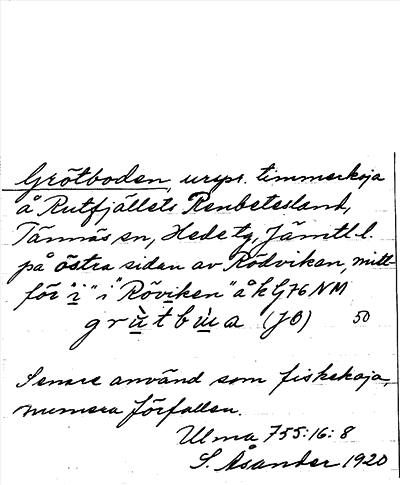 Grötboden, urspr. timmerkoja
å Rutfjällets Renbetesland,
Tännäs sn, Hede tg, Jämtl l.
på östra sidan av Rödviken, mitt
för "i" i "Röviken" å k G76 NM
grùtbùa (JO) 50
Senare använd som fiskekoja,
numera förfallen.
Ulma 755:16:8
S. Åsander 1920